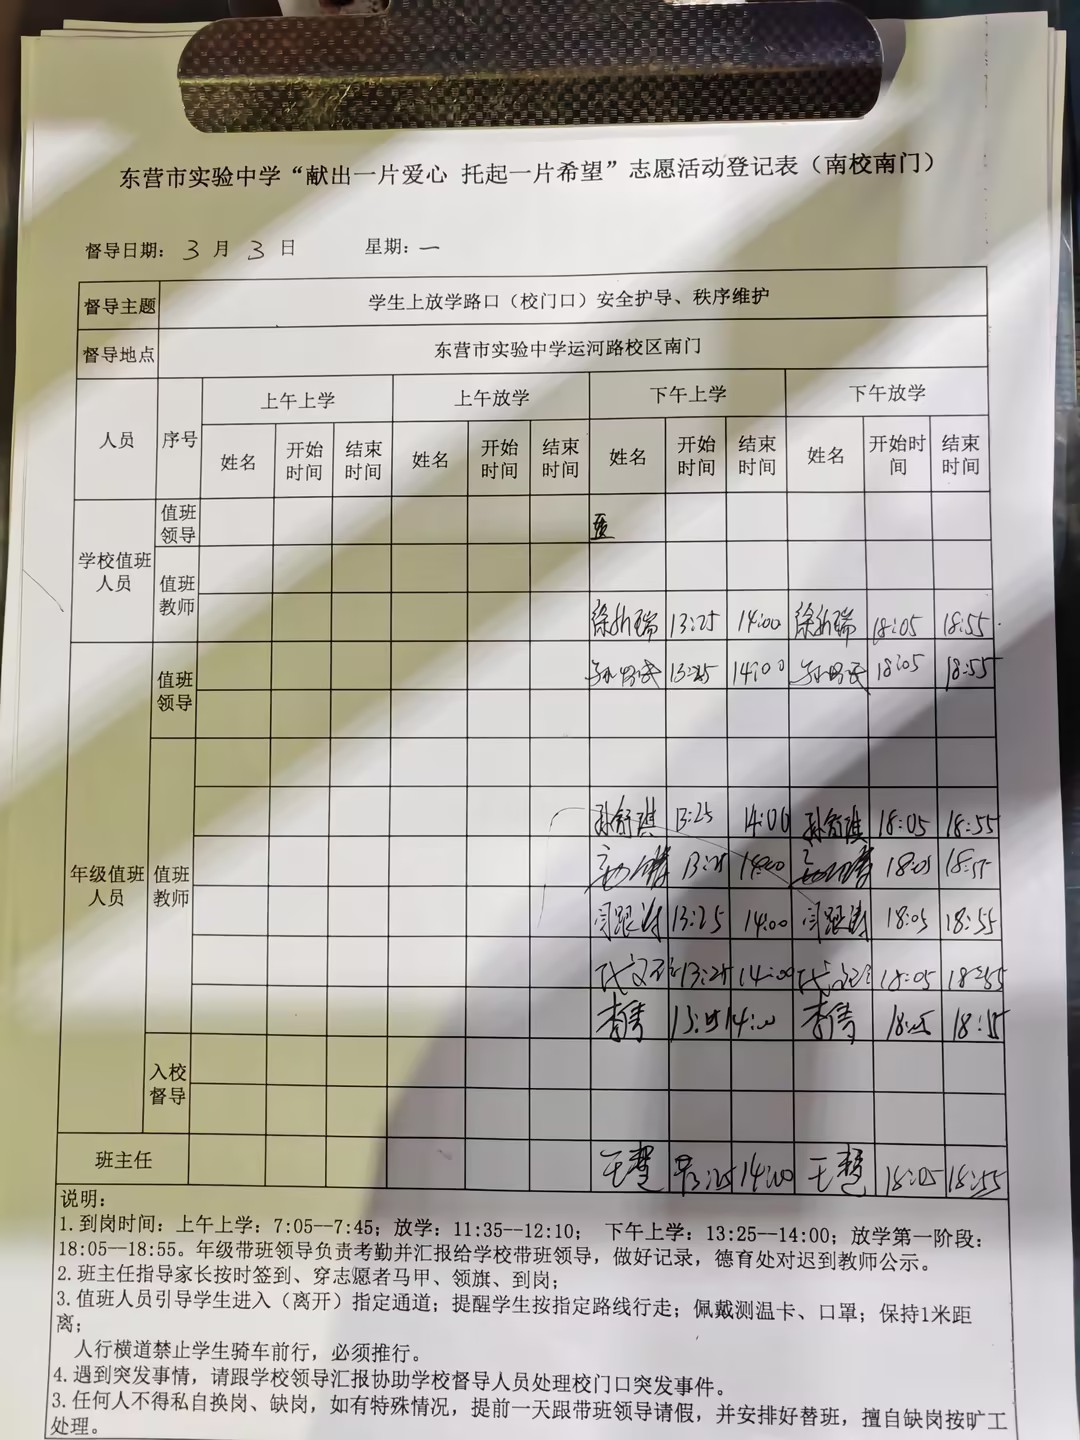 东营市实验中学“献出一片爱心 托起一片希望”志愿活动登记表（南校南门）
督导日期： 3 月 3 日 星期：一
督导主题 学生上放学路口（校门口）安全护导、秩序维护
督导地点 东营市实验中学运河路校区南门
人员 序号 上午上学 上午放学 下午上学 下午放学
姓名 开始时间 结束时间 姓名 开始时间 结束时间 姓名 开始时间 结束时间 姓名 开始时间 结束时间
学校值班人员 值班领导
值班教师
13:25 14:00 18:05 18:55
年级值班人员 值班领导 13:25 14:00 18:05 18:55
值班教师
孙舒琪 13:25 14:00 孙舒琪 18:05 18:55
13:25 14:00 18:05 18:55
闫跟涛 13:25 14:00 闫跟涛 18:05 18:55
13:25 14:00 18:05 18:55
李倩 13:25 14:00 李倩 18:05 18:55
入校督导
班主任 王慧 13:25 14:00 王慧 18:05 18:55
说明：
1.到岗时间：上午上学：7:05--7:45；放学：11:35--12:10； 下午上学：13:25--14:00；放学第一阶段：
18:05--18:55。年级带班领导负责考勤并汇报给学校带班领导，做好记录，德育处对迟到教师公示。
2.班主任指导家长按时签到、穿志愿者马甲、领旗、到岗；
3.值班人员引导学生进入（离开）指定通道；提醒学生按指定路线行走；佩戴测温卡、口罩；保持1米距
离；
人行横道禁止学生骑车前行，必须推行。
4.遇到突发事情，请跟学校领导汇报协助学校督导人员处理校门口突发事件。
3.任何人不得私自换岗、缺岗，如有特殊情况，提前一天跟带班领导请假，并安排好替班，擅自缺岗按旷工
处理。